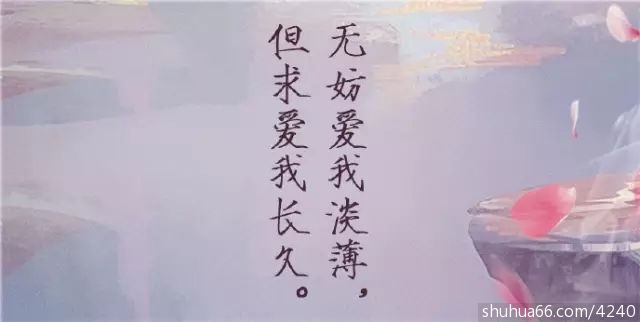 无妨爱我淡薄，
但求爱我长久。
shuhua66.com/4240